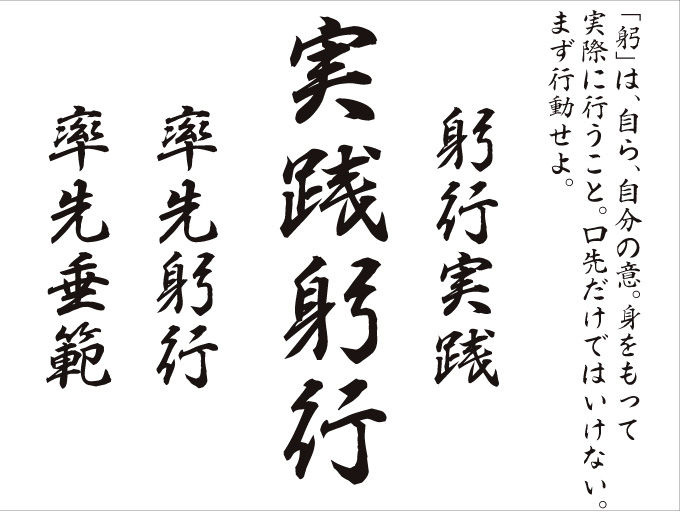 「躬」は、自ら、自分の意。身をもって
実際に行うこと。口先だけではいけない。
まず行動せよ。
躬行実践
実践躬行
率先躬行
率先垂範